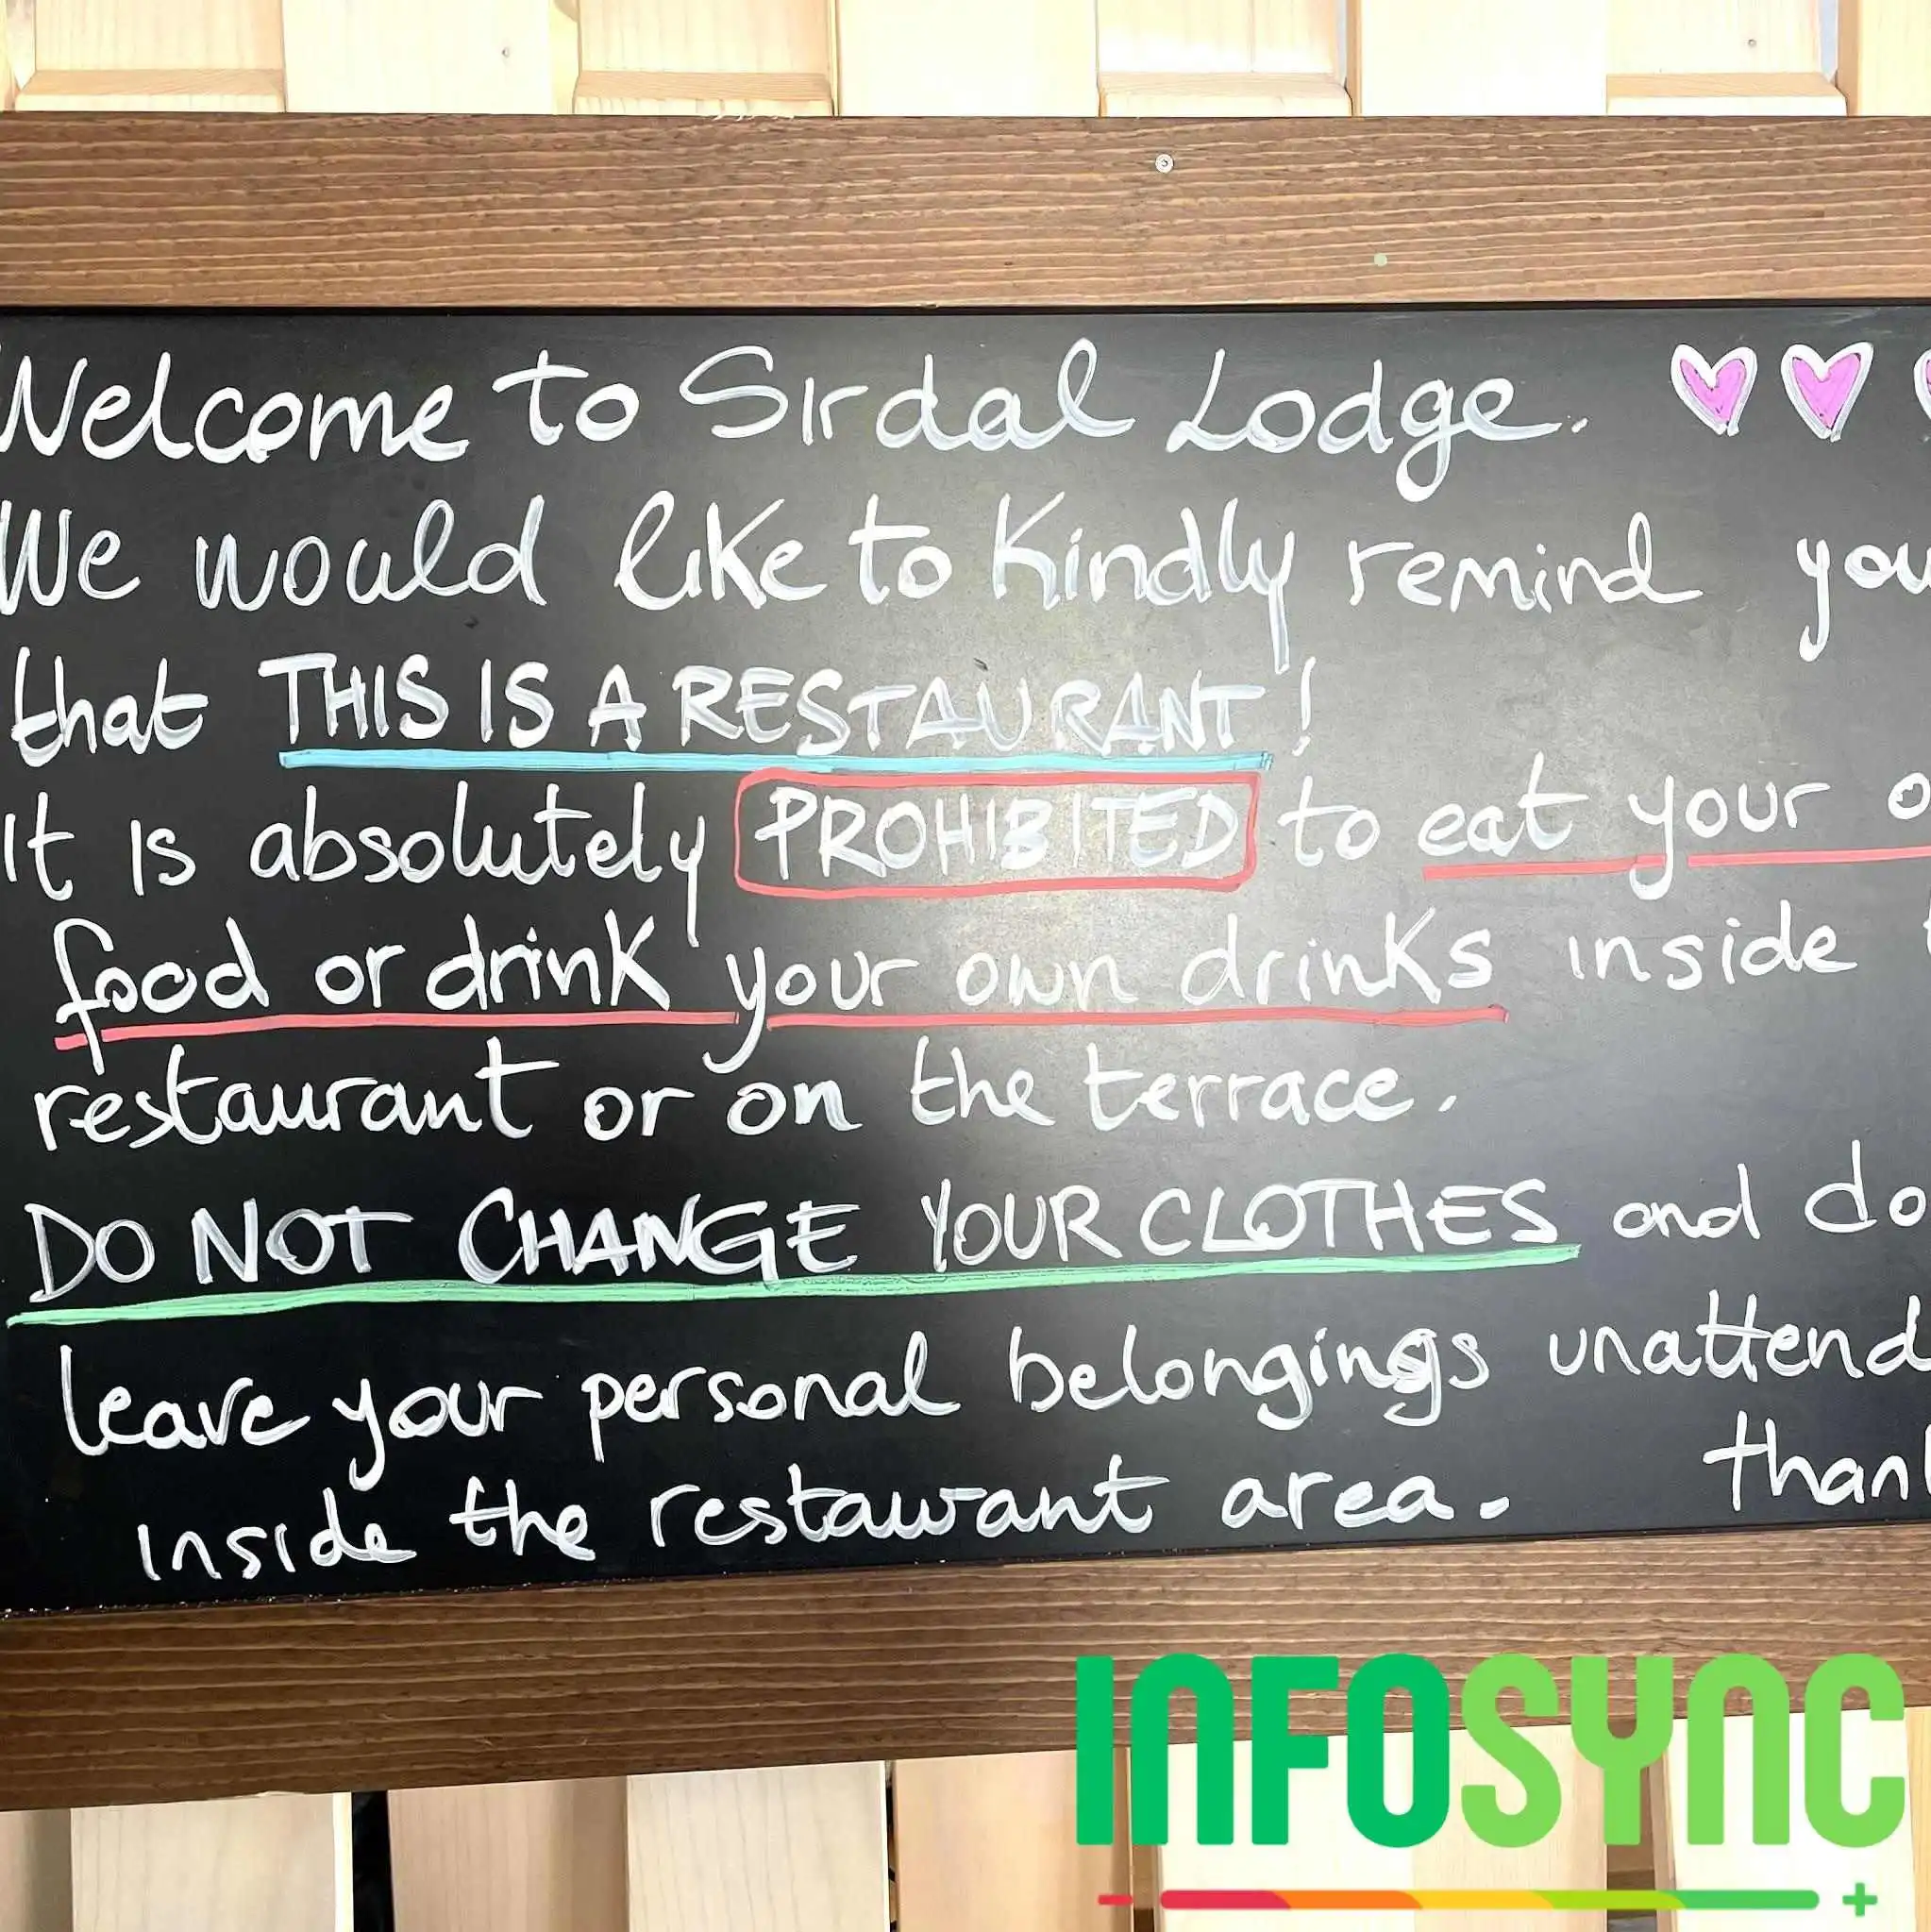 Welcome to Sirdal Lodge.
We would like to kindly remind you
that THIS IS A RESTAURANT!
It is absolutely PROHIBITED to eat your o
food or drink your own drinks inside
restaurant or on the terrace.
DO NOT CHANGE YOUR CLOTHES and do
leave your personal belongings unattend
inside the restaurant area. than
INFOSYNC
- +